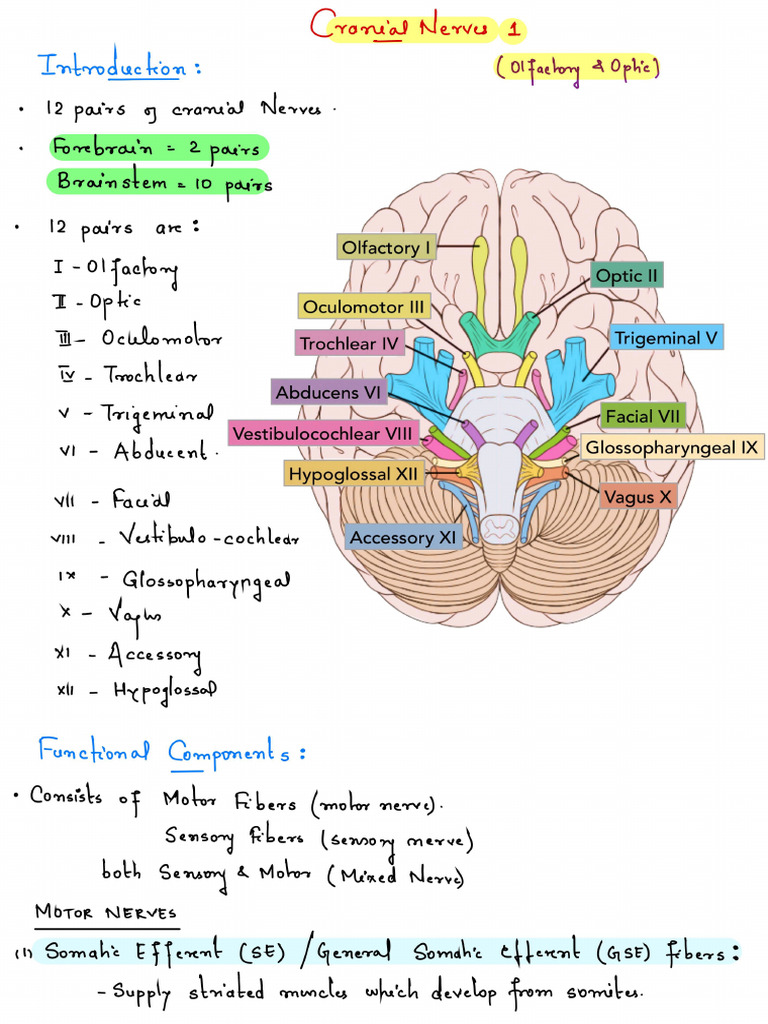 Cranial Nerves 1
(Olfactory & Optic)
Introduction:
• 12 pairs of cranial Nerves.
• Forebrain = 2 pairs
Brainstem = 10 pairs
• 12 pairs are:
I - Olfactory
II - Optic
III - Oculomotor
IV - Trochlear
V - Trigeminal
VI - Abducent.
VII - Facial
VIII - Vestibulo-cochlear
IX - Glossopharyngeal
X - Vagus
XI - Accessory
XII - Hypoglossal
Olfactory I
Optic II
Oculomotor III
Trochlear IV
Trigeminal V
Abducens VI
Facial VII
Vestibulocochlear VIII
Glossopharyngeal IX
Hypoglossal XII
Vagus X
Accessory XI
Functional Components:
• Consists of Motor Fibers (motor nerve).
Sensory Fibers (sensory nerve)
both Sensory & Motor (Mixed Nerve)
MOTOR NERVES
(1) Somatic Efferent (SE) / General Somatic Efferent (GSE) fibers:
- Supply striated muscles which develop from somites.